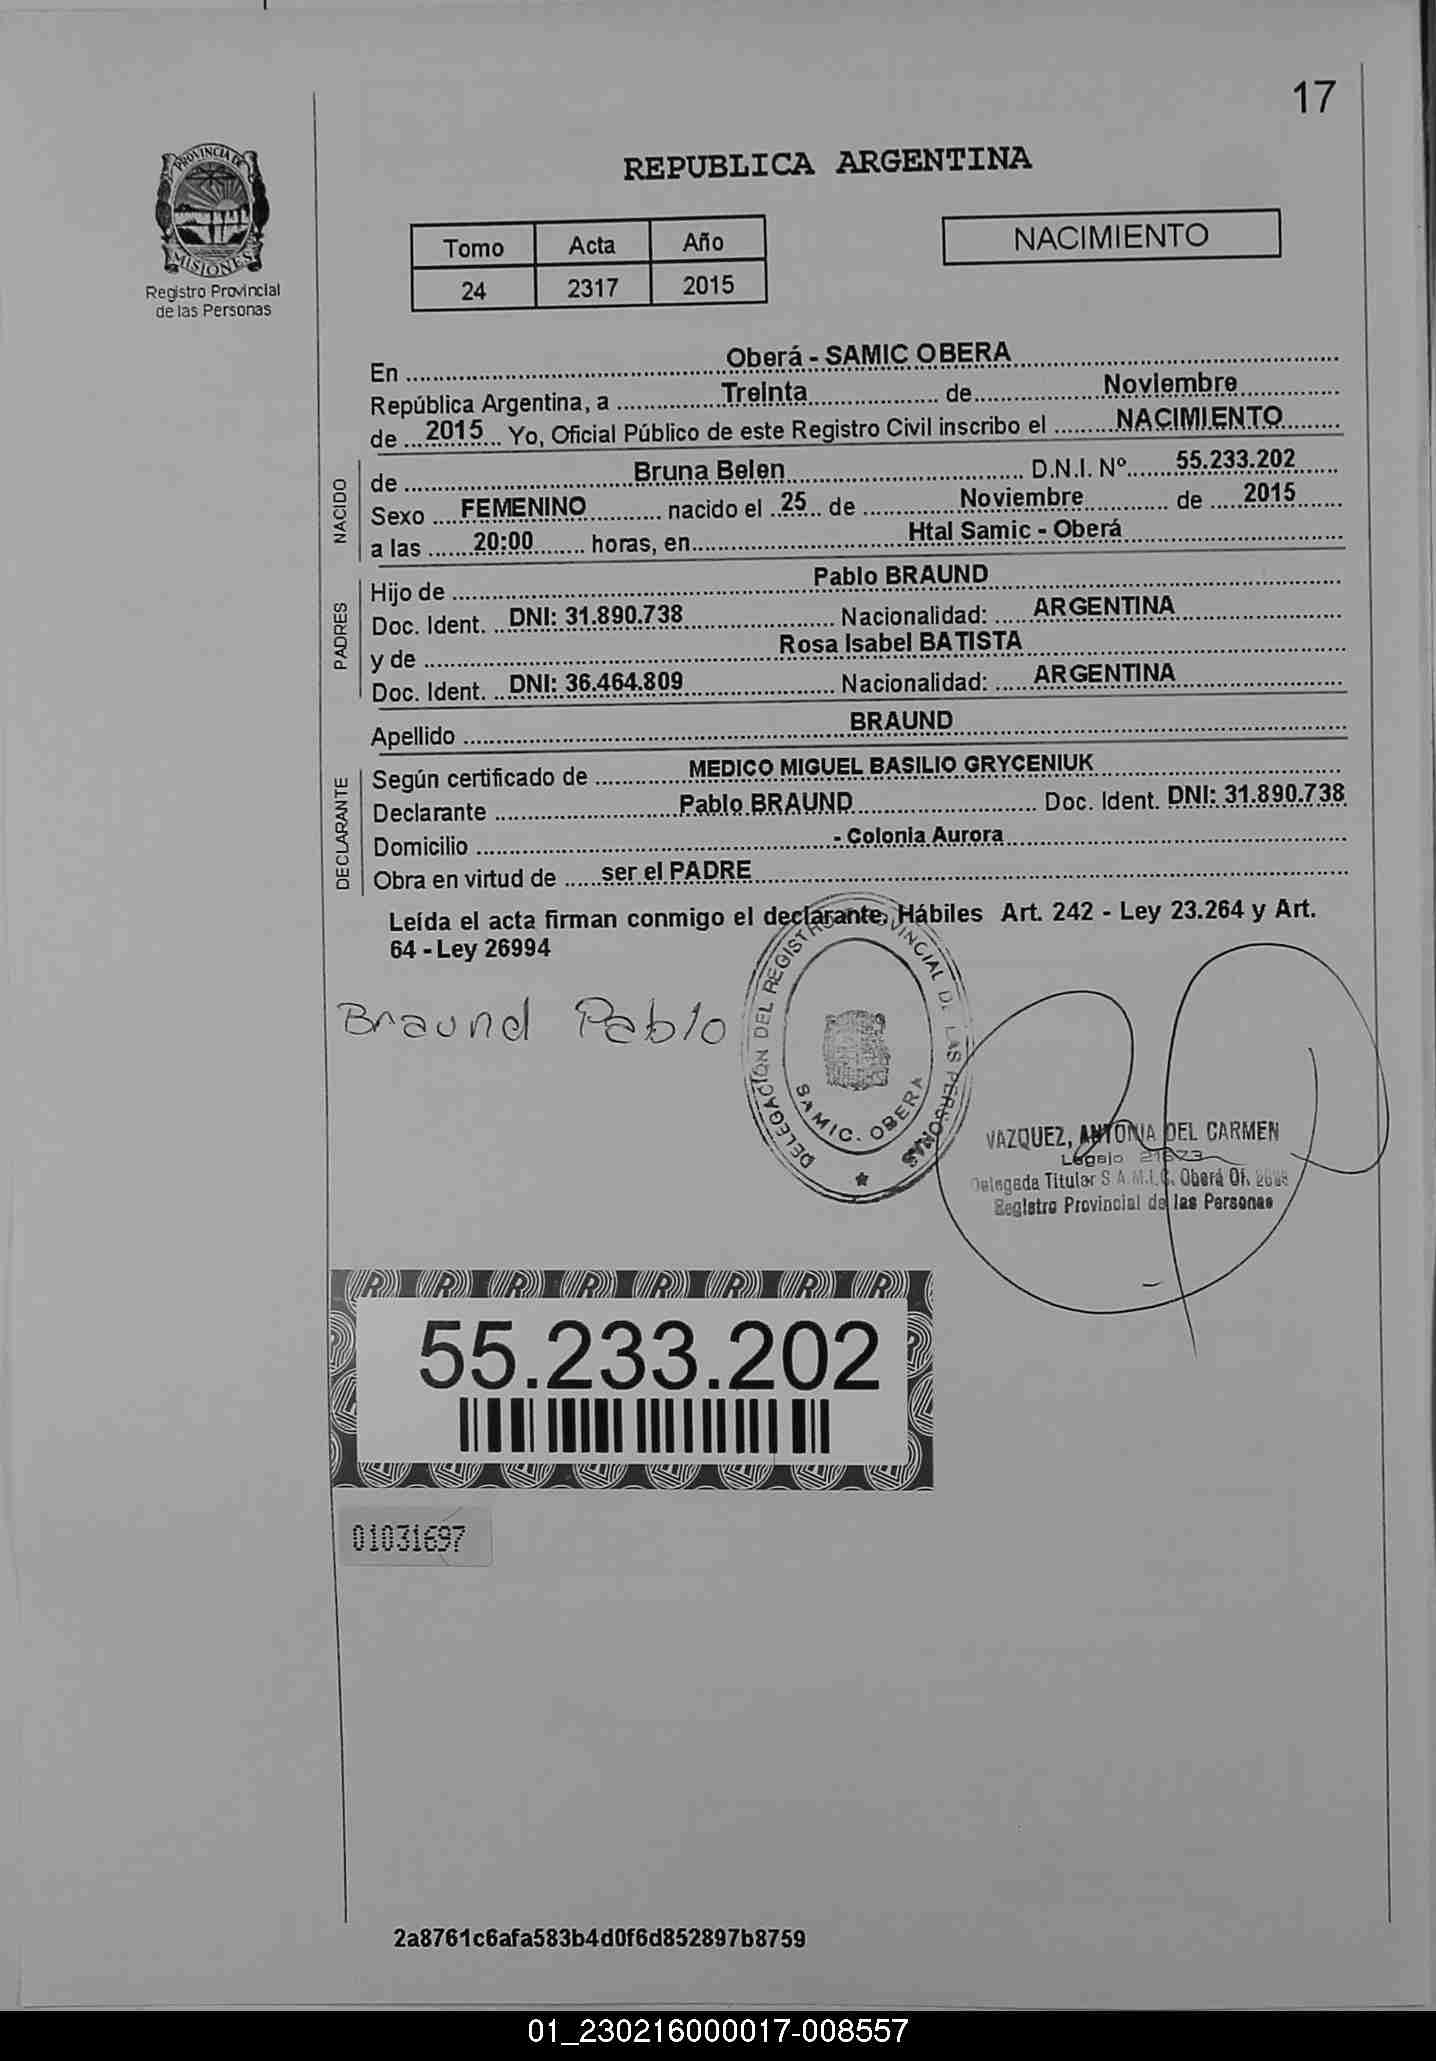 17
PROVINCIA DE
MISIONES
Registro Provincial
de las Personas
REPUBLICA ARGENTINA
Tomo Acta Año
24 2317 2015
NACIMIENTO
En Oberá - SAMIC OBERA
República Argentina, a Treinta de Noviembre
de 2015 Yo, Oficial Público de este Registro Civil inscribo el NACIMIENTO
NACIDO
de Bruna Belen D.N.I. Nº 55.233.202
Sexo FEMENINO nacido el 25 de Noviembre de 2015
a las 20:00 horas, en Htal Samic - Oberá
PADRES
Hijo de Pablo BRAUND
Doc. Ident. DNI: 31.890.738 Nacionalidad: ARGENTINA
y de Rosa Isabel BATISTA
Doc. Ident. DNI: 36.464.809 Nacionalidad: ARGENTINA
Apellido BRAUND
DECLARANTE
Según certificado de MEDICO MIGUEL BASILIO GRYCENIUK
Declarante Pablo BRAUND Doc. Ident. DNI: 31.890.738
Domicilio - Colonia Aurora
Obra en virtud de ser el PADRE
Leída el acta firman conmigo el declarante, Hábiles Art. 242 - Ley 23.264 y Art.
64 - Ley 26994
Braund Pablo
DELEGACIÓN DEL REGISTRO PROVINCIAL DE LAS PERSONAS
SAMIC. OBERA
VAZQUEZ, ANTONIA DEL CARMEN
Legajo
Delegada Titular S.A.M.I.C. Oberá Of.
Registro Provincial de las Personas
55.233.202
01031697
2a8761c6afa583b4d0f6d852897b8759
01_230216000017-008557